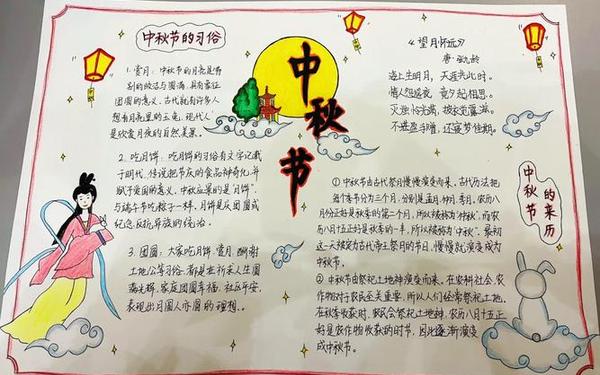 中秋节的习俗
1. 赏月：中秋节的月亮是特
别的皎洁与圆满，具有象征
团圆的意义。古代就有许多人
想有月亮里的玉兔，现代人
是欣赏月夜的自然美景。
2. 吃月饼：吃月饼的习俗有文字记载
于明代，传说把节庆的食品神奇化，并
赋予爱国的意义，中秋应景的是“月饼”，
与端午节吃粽子一样，月饼是庆团圆或
纪念反抗异族的统治。
3. 团圆：大家吃月饼、赏月、酬谢
土地公等习俗，都是在祈求人生圆
满光辉，家庭团圆幸福，社区平安，
表现出月圆人亦圆的理想。
中秋节
《望月怀远》
唐·张九龄
海上生明月，天涯共此时。
情人怨遥夜，竟夕起相思。
灭烛怜光满，披衣觉露滋。
不堪盈手赠，还寝梦佳期。
中秋节的来历
① 中秋节由古代祭月慢慢演变而来。古代历法把
每个季节分为三个月，分别是孟月、仲月、季月，农历八
月份正好是秋季的第二个月，所以被称为“仲秋”。而农
历八月十五正好是秋季的一半，所以被称为“中秋”。最初
这一天被定为古代帝王祭月的节日，慢慢就演变成为
中秋节。
② 中秋节由祭祀土地神演变而来。在农耕社会，农
作物对于农民至关重要，所以人们经常祭祀土地。
在秋季收获时，农民会祭祀土地神，农历八月十五正
好是农作物收获的时节，因此逐渐演变
成中秋节。